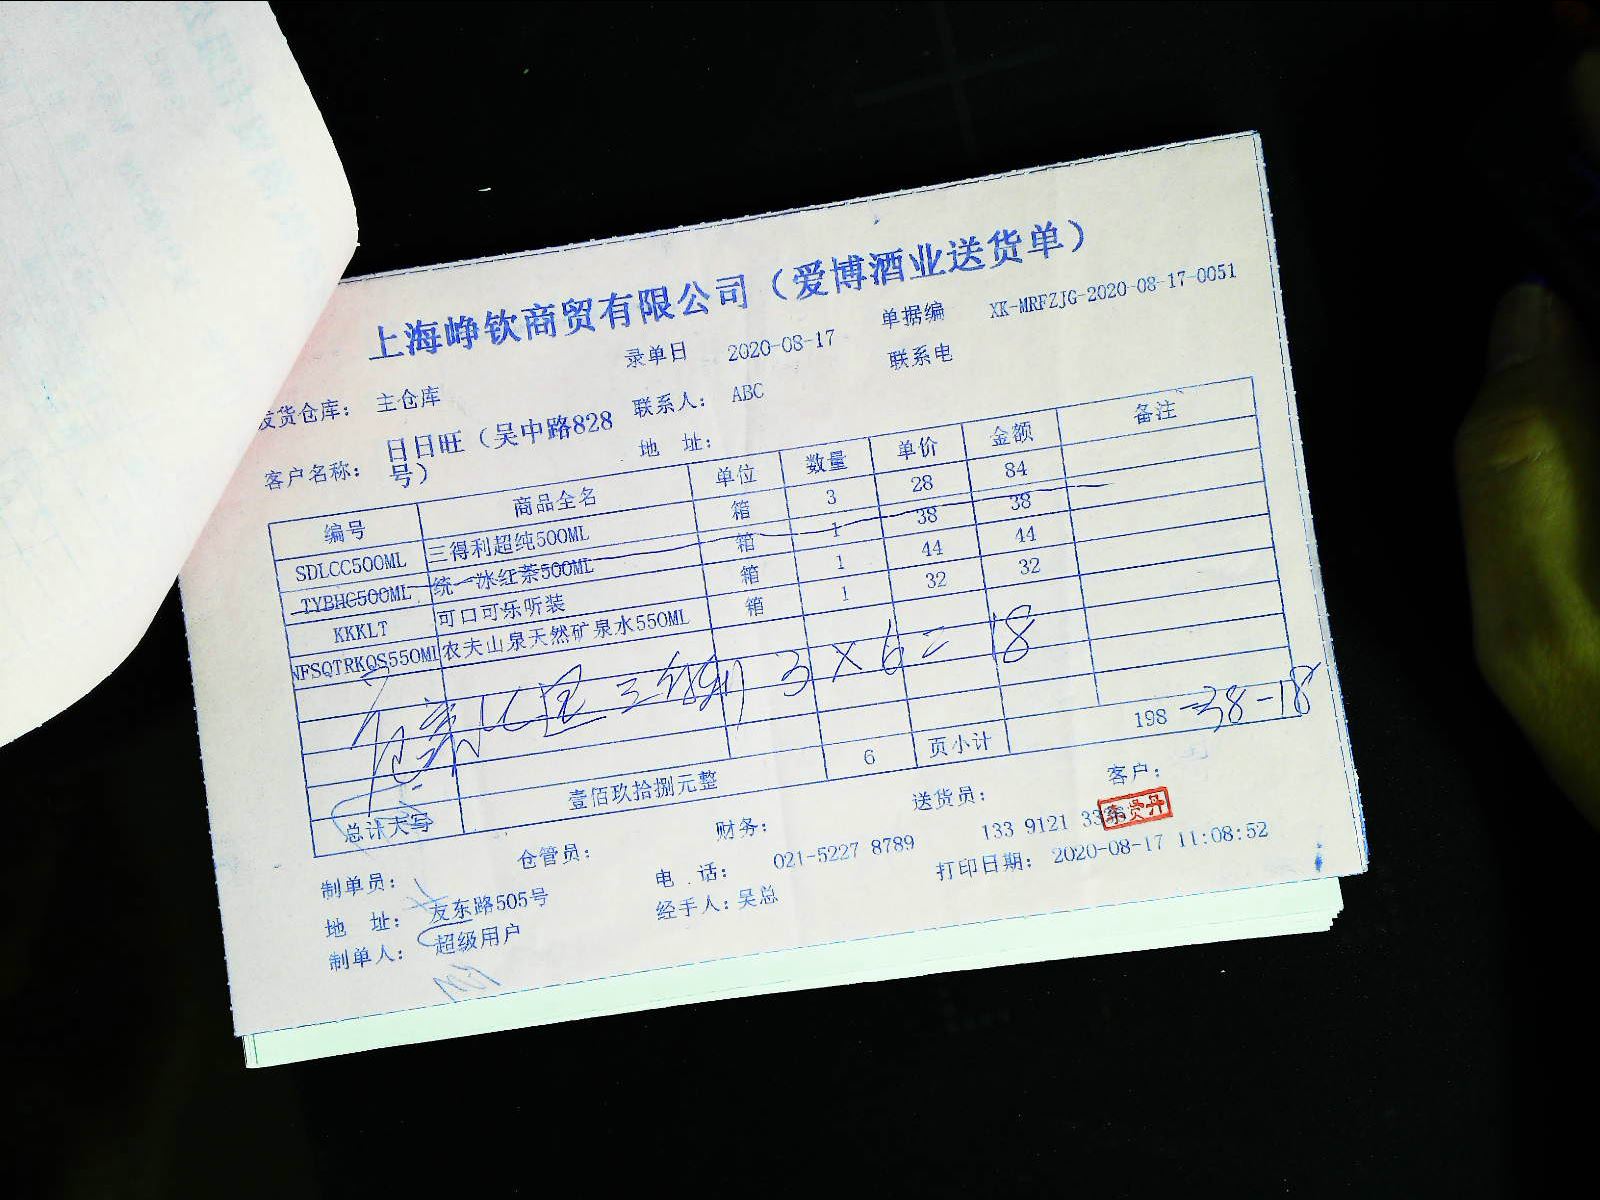 上海峥钦商贸有限公司（爱博酒业送货单）
录单日 2020-08-17 单据编 XK-MRFZJG-2020-08-17-0051
发货仓库： 主仓库 联系人： ABC 联系电
客户名称： 日日旺（吴中路828号） 地 址：
编号 商品全名 单位 数量 单价 金额 备注
SDLCC500ML 三得利超纯500ML 箱 3 28 84
TYBHC500ML 统一冰红茶500ML 箱 1 38 38
KKKLT 可口可乐听装 箱 1 44 44
NFSQTRKQS550ML 农夫山泉天然矿泉水550ML 箱 1 32 32
3×6=18
总计大写 壹佰玖拾捌元整 6 页小计 198 -38-18
制单员： 仓管员： 财务： 送货员： 客户：
地 址： 友东路505号 电 话： 021-5227 8789 133 9121
制单人： 超级用户 经手人：吴总 打印日期： 2020-08-17 11:08:52